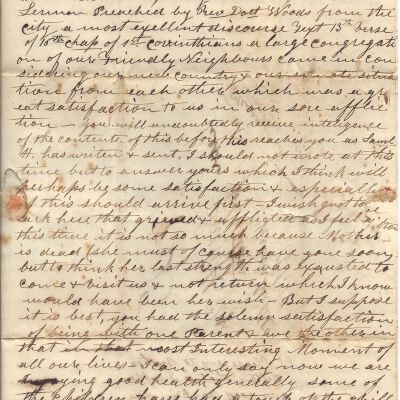 Sermon Preached by Rev Doct Woods from the
city a most exellent discourse Text 13th verse
of 15th chap of 1st corinthians a large congregati
on of our friendly Neighbours came in con
sidering our new country & our situa
tion from each other which was a gr
eat satisfaction to us in our sore afflic
tion – you will undoubtedly receive inteligence
of the contents of this before this reaches you as Saml
H. has writen & sent, I should not wrote at this
time but to answer yours which I think will
perhaps be some satisfaction & especially
if this should arrive first – I wish just to
here that grieved & afflicted as I feel at
this time it is not so much because Mother
is dead (she must of course have gone soon
but I think her last strength was exausted to
come & visit us & not return which I know
would have been her wish – But I suppose
it is best you had the solemn satisfaction
of being with one Parent & we the other in
that most Interesting Moment of
all our lives – I can only say now we are
enjoying good health generally some of
the Children have had a touch of the chill